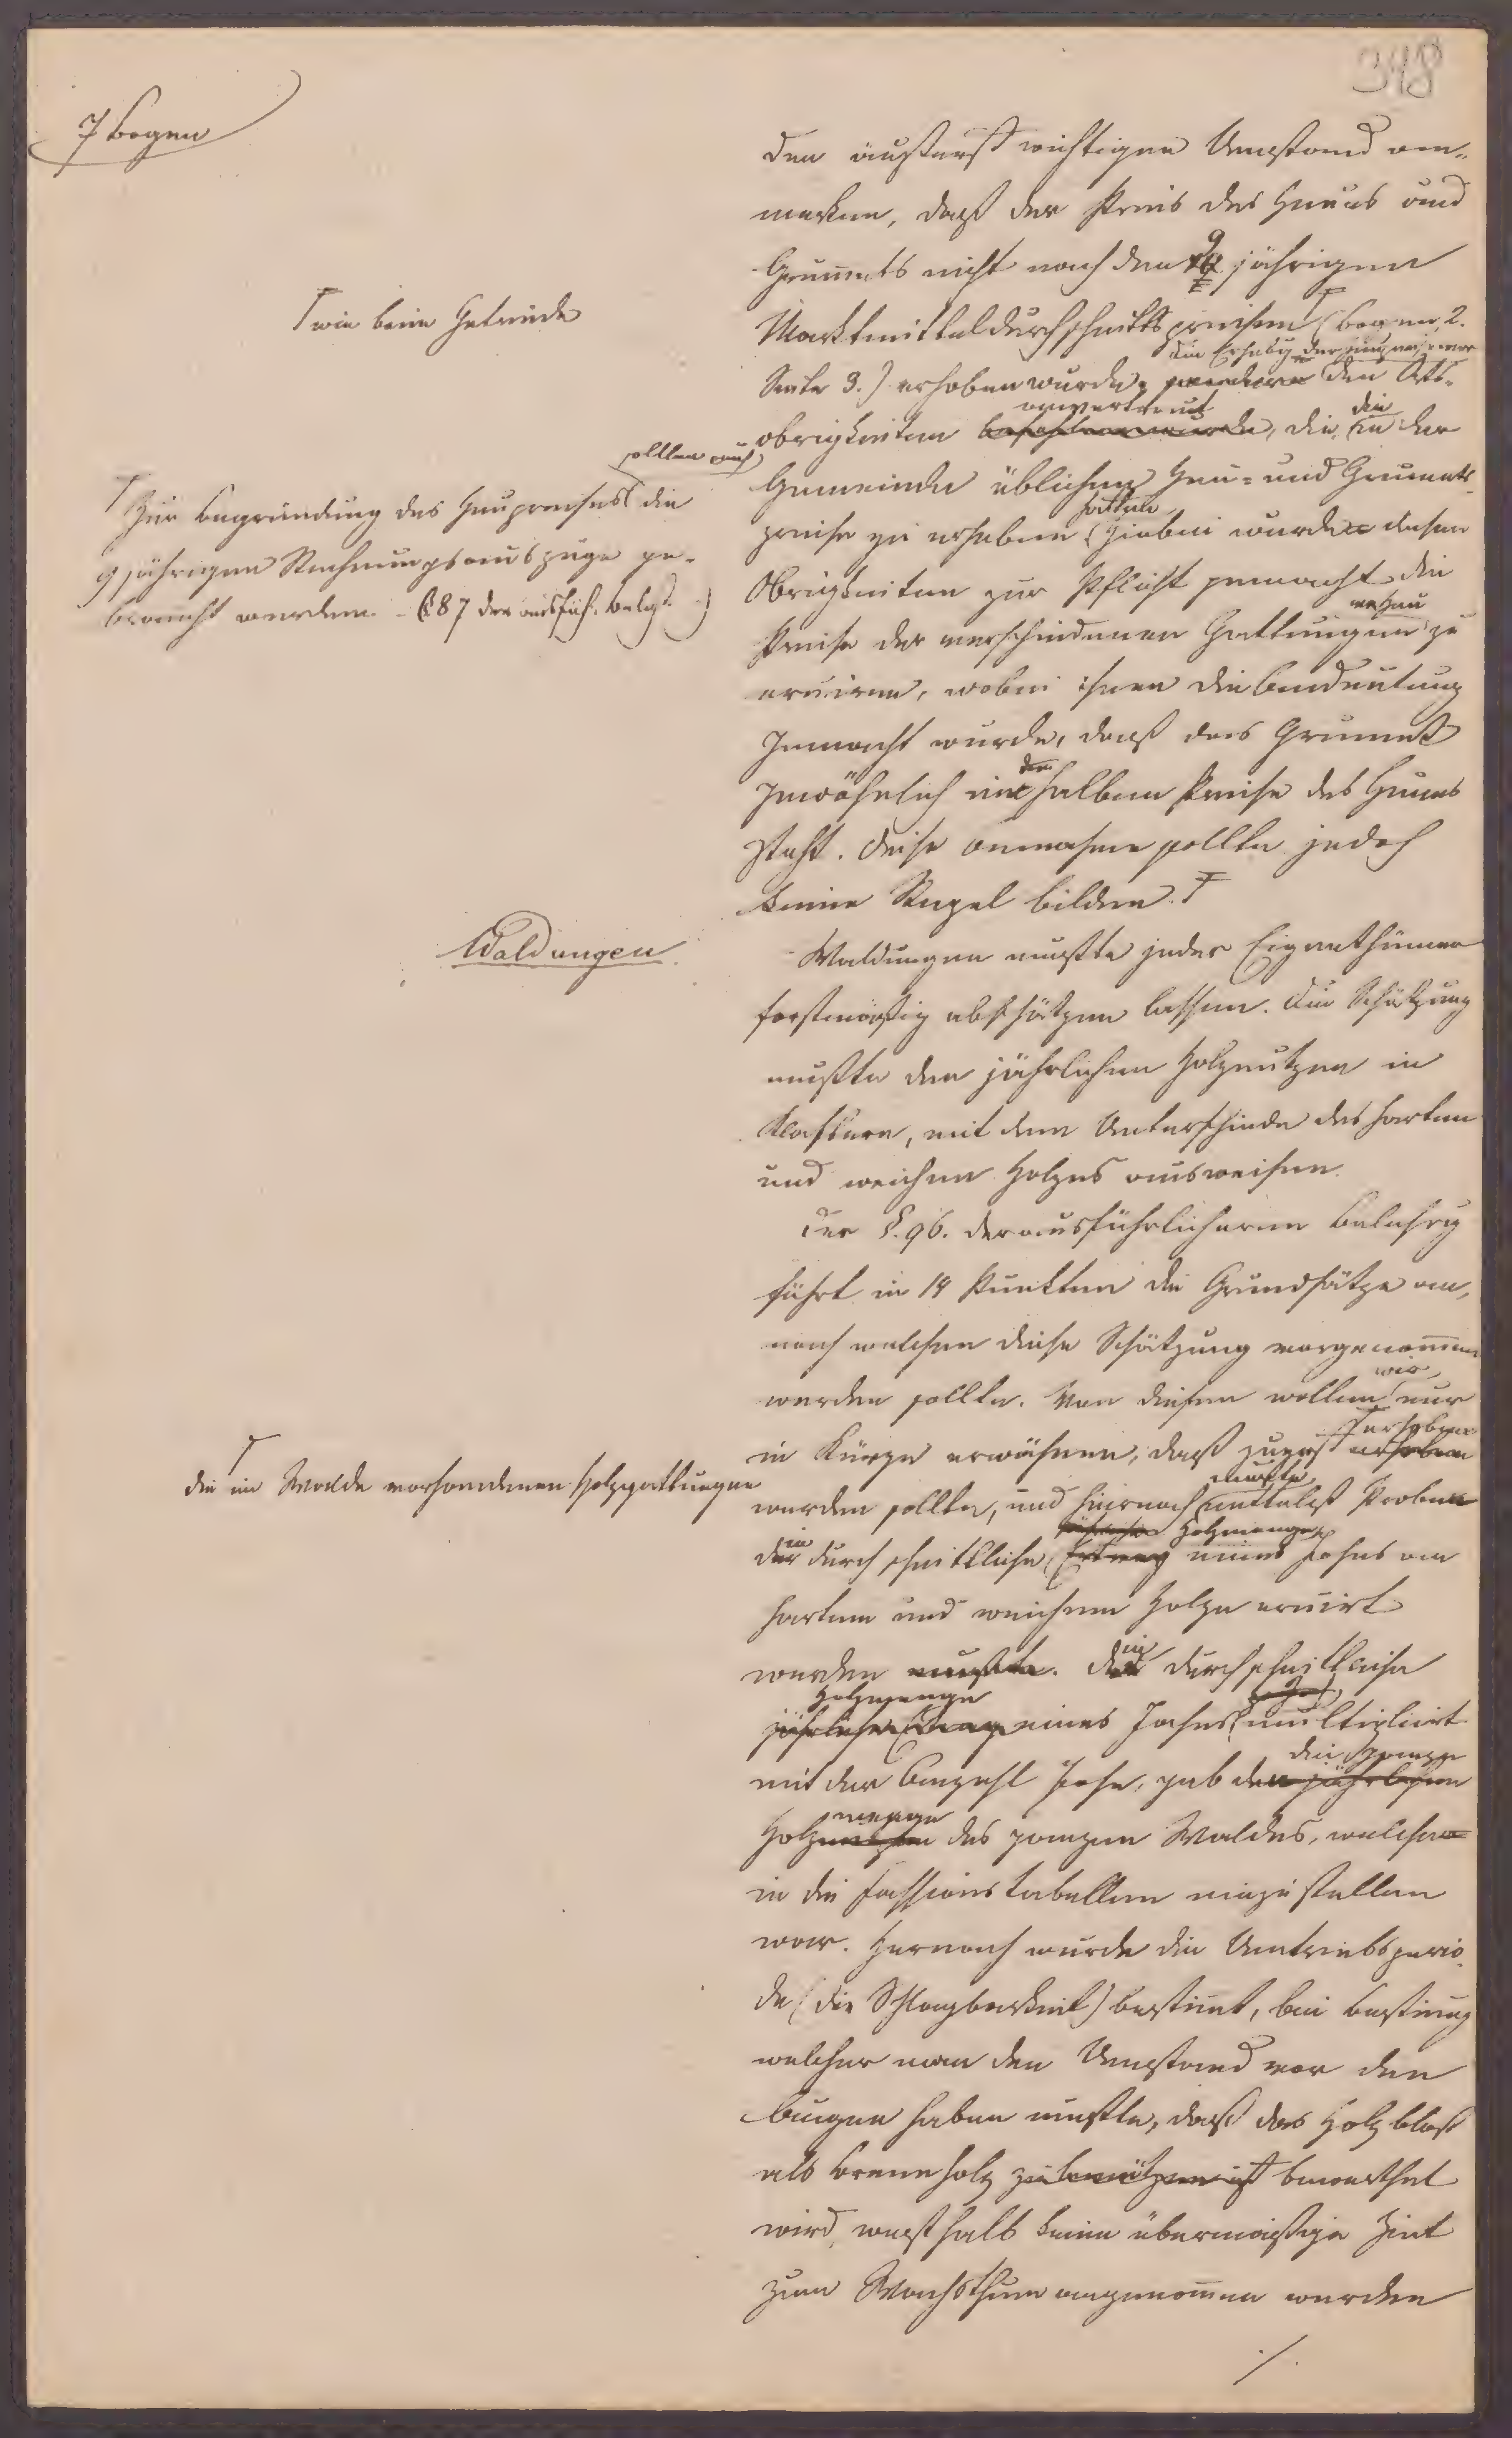 348
7 Bogen
den äußerst wichtigen Umstand an„
merken, daß der Preis des Heues und
Grum̅ets nicht nach den 9 jährigen
Marktmitteldurchschnittspreisen (Bogen 2.
⊤ wie beim Getreide
Seite 3.) erhoben wurde,
die Erhebg derjenigen war
den Orts„
obrigkeiten anvertraut, die in der
Gemeinde üblichen Heu= und Grumets
preise zu erheben. Hiebei wurde diesen
Obrigkeiten zur Pflicht gemacht die
Preise der verschiedenen Gattungen zu
eruiren, wobei ihnen die Andeutung
gemacht wurde, daß das Grumet
gewöhnlich im halben Preise des Heues
steht. Diese Annahme sollte jedoch
keine Regel bilden. ⊤
⊤ Zur Begründung des Heupreises sollten auch die
9 jährigen Rechnungsauszüge ge„
braucht werden. (§ 87 der ausfüh. Belehg.)
Waldungen
Waldungen mußte jeder Eigenthümer
forstmäßig abschätzen lassen. Die Schätzung
mußte den jährlichen Holznutzen in
Klaftern, mit dem Unterschiede des harten
und weichen Holzes ausweisen.
Der §. 96. der ausführlicheren Belehrg
führt in 14 Punkten die Grundsätze an,
nach welchen diese Schätzung vorgenom̅en
werden sollte. Von diesen wollen wir nur
in Kürze erwähnen, daß zuerst ⊤ erhoben
⊤ die im Walde vorhandenen Holzgattungen
werden sollte, und hiernach mußte mittelst Proben
die durchschnittliche Holzmenge eines Johes an
hartem und weichem Holze eruirt
werden mußte. Die durchschnittliche
Holzmenge
jährliche Ertrag eines Johes multiplicirt
mit der Anzahl Johe, gab die ganze
den jährlichen
Holzmenge des ganzen Waldes, welche
in die Fassionstabellen einzustellen
war. Hernach wurde die Umtriebsperio„
de (die Schlagbarkeit) bestim̅t, bei Bestim̅ung
welcher man den Umstand vor den
Augen haben mußte, daß das Holz bloß
als Brennholz zu benützen ist bewerthet
wird, weßhalb keine übermäßige Zeit
zum Wachsthum angenom̅en werden
./.